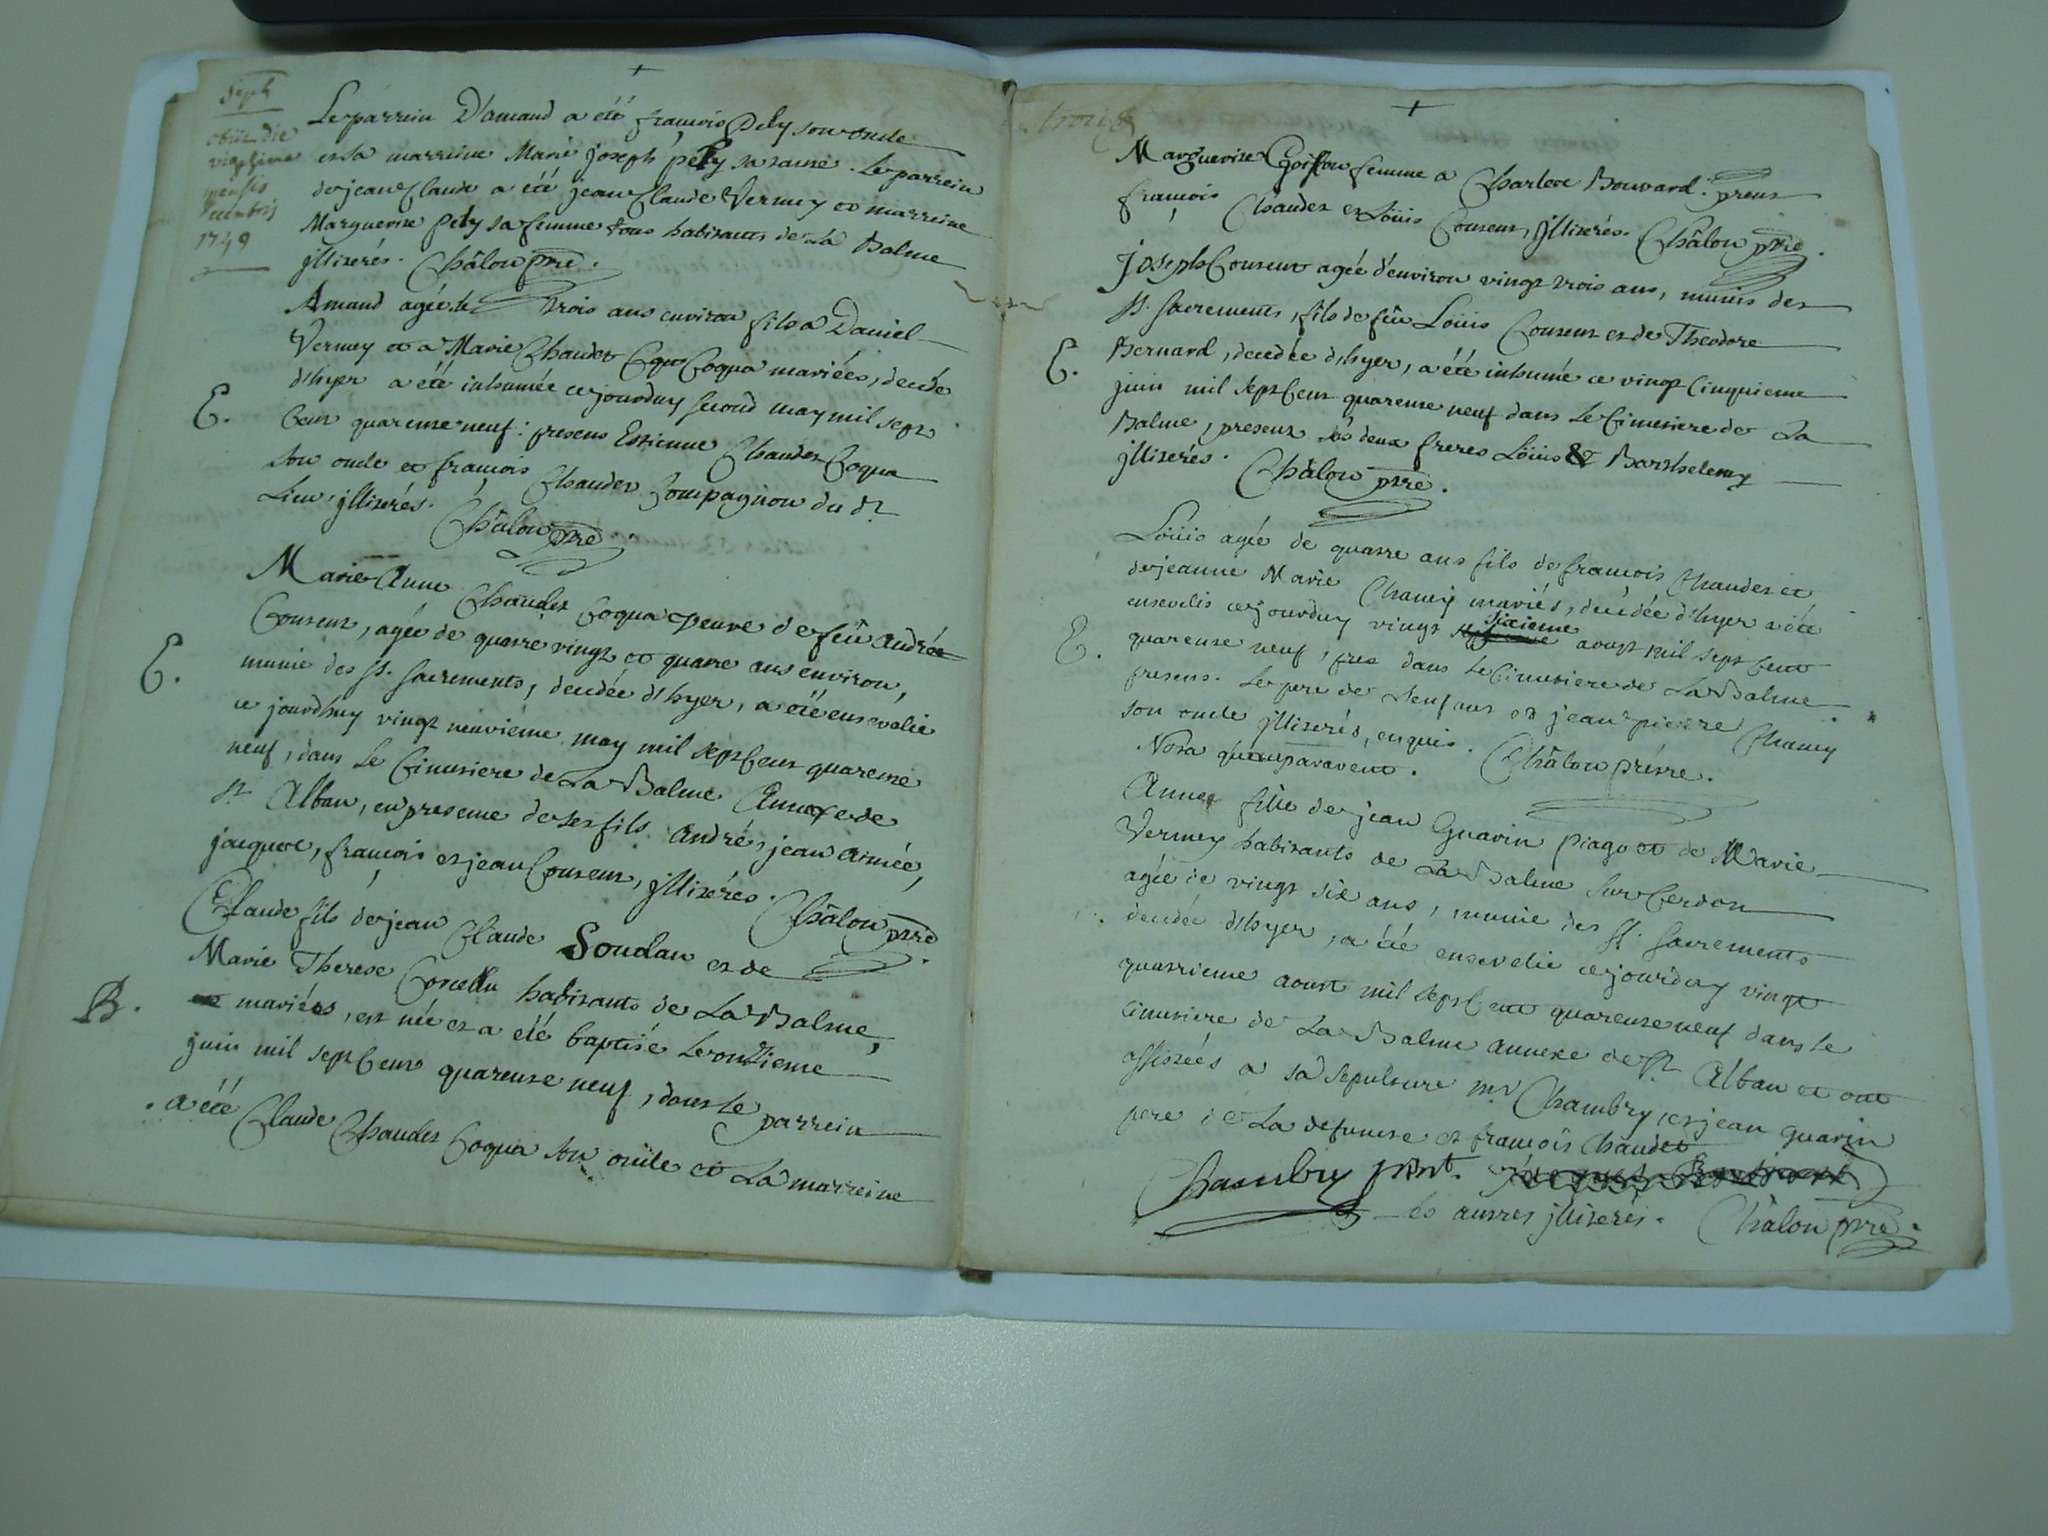 Sept
obiit die
vigesima
mensis
1749
Le parrein D'amand a été françois Pety son oncle
et sa marreine Marie joseph pety sa tante. Le parrein
de jean Claude a été jean Claude Verney et marreine
Marguerite Pety sa femme tous habitants de La Balme
jllitérés. Châlon ptre.
Amand agée de trois ans environ fils a Daniel
Verney et a Marie Chaudet Coqua mariées, decéde
d'hyer a été inhumée cejourduy second may mil sept
Cent quarente neuf: presens Estienne Chaudet Coqua
son oncle et françois Chaudet Compagnon du dt
Lieu, jllitérés. Châlon ptre.
E.
Marie Anne Chaudet Coqua veuve de feû André
Couteur, agée de quatre vingt et quatre ans environ,
munie des st. sacrements, decedée d'hyer, a été ensevelie
ce jourdhuy vingt neuvieme may mil sept Cent quarente
neuf, dans Le Cimetiere de La Balme Annexe de
st Alban, en presence de ses fils André, jean aimée,
jacques, françois et jean Couteur, jllitérés. Châlon ptre
E.
Claude fils de jean Claude Soudan et de
Marie Therese habitants de La Balme,
mariées, est née et a été baptisé Le onzieme
juin mil sept Cent quarente neuf, dont Le parrein
a été Claude Chaudet Coqua son oncle et La marreine
B.
trois
Marguerite Goiffon femme a Charles Bouvard. presens
françois Chaudet et Loüis Couteur, jllitérés. Châlon ptre.
Joseph Couteur agée d'environ vingt trois ans, munis des
st. sacrements, fils de feû Loüis Couteur et de Theodore
Bernard, decedée d'hyer, a été inhumé ce vingt Cinquieme
juin mil sept Cent quarente neuf dans Le Cimetiere de La
Balme, present ses deux freres Loüis & Barthelemy
jllitérés. Châlon ptre.
E.
Loüis agée de quatre ans fils de françois Chaudet et
de jeanne Marie Chamy mariés, decédée d'hyer a été
ensevelis cejourduy vingt sixieme aoust mil sept Cent
quarente neuf, dans Le Cimetiere de La Balme.
presens. Le pere de L'enfant et jean pierre Chamy
son oncle jllitérés, enquis. Châlon prêtre.
Nota qu'auparavent.
E.
Anne fille de jean Guarin piago et de Marie
Verney habitants de La Balme sur Cerdon
agée de vingt six ans, munie des st. sacrements
decedée d'hyer, a été ensevelie cejourduy vingt
quatrieme aoust mil sept Cent quarente neuf dans Le
Cimetiere de La Balme annexe de st Alban et ont
assistées a sa sepulture mr Chambry, et jean guarin
pere de La defuncte et françois Chaudet
Chambry pnt.
les autres jllitérés. Châlon ptre.